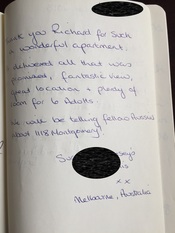 Thank you Richard for such
a wonderful apartment.
delivered all that was
promised, fantastic view,
great location + plenty of
room for 6 Adults
We will be telling fellow Aussies
about 1118 Montgomery.
x x
Melbourne, Australia